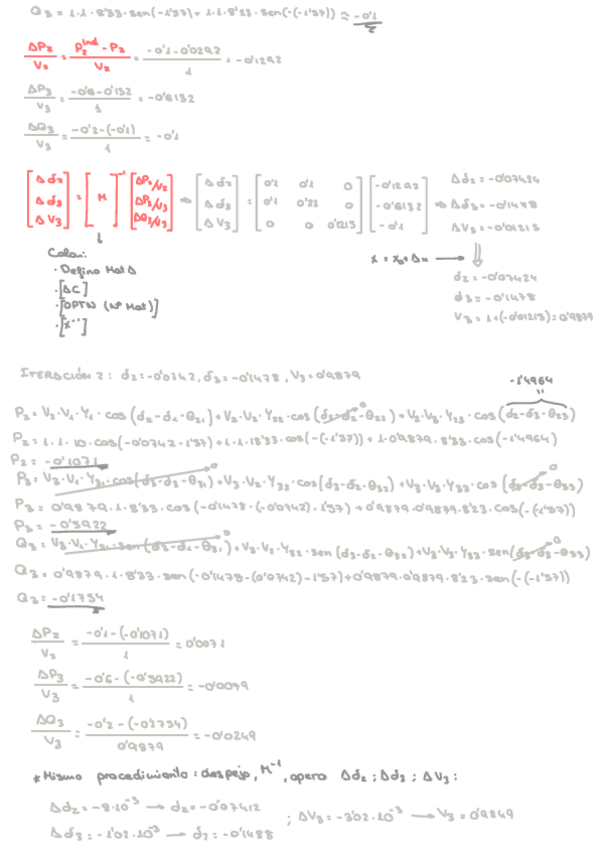 Q3 = 1·1·8'33·sen(-1'57)+1·1·8'23·sen(-(-1'57)) ≈ -0'1
ΔP2/V2 = (P2^ind - P2)/V2 = (-0'1-0'0292)/1 = -0'1292
ΔP3/V3 = (-0'6-0'132)/1 = -0'6132
ΔQ3/V3 = (-0'2-(-0'1))/1 = -0'1
[Δd2 Δd3 ΔV3] = [M]^-1 [ΔP2/V2 ΔP3/V3 ΔQ3/V3] → [Δd2 Δd3 ΔV3] = [0'1 0'1 0 0'1 0'22 0 0 0 0'1215] [-0'1292 -0'6132 -0'1] ⇒ Δd2 = -0'07424 Δd3 = -0'1478 ΔV3 = -0'01215
Calcu:
· Defino Mat A
· [AC]
· [OPTN (Nº Mat)]
· [x^-1]
x = x0 + Δx →
d2 = -0'07424
d3 = -0'1478
V3 = 1+(-0'01215) = 0'9879
ITERACIÓN 2: d2 = -0'0742, d3 = -0'1478, V3 = 0'9879
-1'4964
P2 = V2·V1·Y21·cos(d2-d1-θ21)+V2·V2·Y22·cos(d2-d2-θ22)+V2·V3·Y23·cos(d2-d3-θ23)
P2 = 1·1·10·cos(-0'0742-1'57)+1·1·18'33·cos(-(-1'57))+1·0'9879·8'33·cos(-1'4964)
P2 = -0'1071
P3 = V3·V1·Y31·cos(d3-d1-θ31)+V3·V2·Y32·cos(d3-d2-θ32)+V3·V3·Y33·cos(d3-d3-θ33)
P3 = 0'9879·1·8'33·cos(-0'1478-(-0'0742)-1'57)+0'9879·0'9879·8'23·cos(-(-1'57))
P3 = -0'5922
Q3 = V3·V1·Y31·sen(d3-d1-θ31)+V3·V2·Y32·sen(d3-d2-θ32)+V3·V3·Y33·sen(d3-d3-θ33)
Q3 = 0'9879·1·8'33·sen(-0'1478-(0'0742)-1'57)+0'9879·0'9879·8'23·sen(-(-1'57))
Q3 = -0'1754
ΔP2/V2 = (-0'1-(-0'1071))/1 = 0'0071
ΔP3/V3 = (-0'6-(-0'5922))/1 = -0'0079
ΔQ3/V3 = (-0'2-(-0'1754))/0'9879 = -0'0249
*Mismo procedimiento: despejo, M^-1, opero Δd2; Δd3; ΔV3:
Δd2 = -8·10^-5 → d2 = -0'07412
; ΔV3 = -3'02·10^-3 → V3 = 0'9849
Δd3 = -1'02·10^-3 → d3 = -0'1488